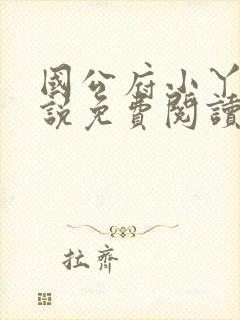 國公府小丫
說免費閱讀
拉齊